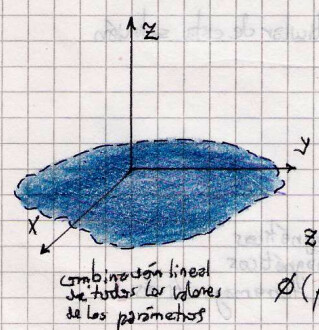 Z
y
X
z
combinación lineal
de todos los valores
de los parámetros
φ(